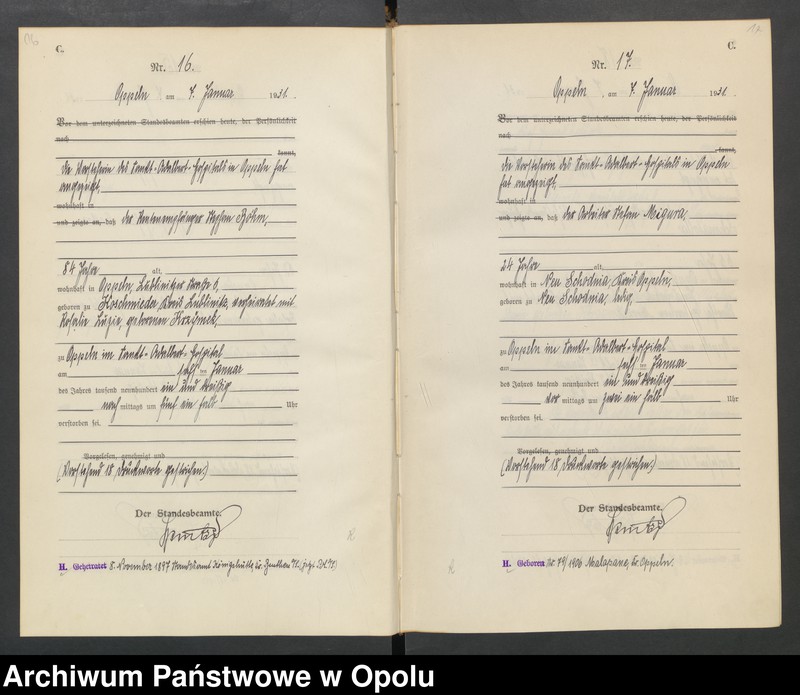 C.
Nr. 16.
Oppeln, am 7. Januar 1931.
Vor dem unterzeichneten Standesbeamten erschien heute, der Persönlichkeit
nach
kannt,
die Vorsteherin des Sankt-Adalbert-Hospitals in Oppeln hat
angezeigt,
wohnhaft in
und zeigte an, daß der Rentenempfänger Stephan Böhm,
84 Jahre alt,
wohnhaft in Oppeln, Lublinitzer Straße 6,
geboren zu Koschmieder Kreis Lublinitz, verheiratet mit
Rosalie Luzie, geborenen
zu Oppeln im Sankt-Adalbert-Hospital
am sechs ten Januar
des Jahres tausend neunhundert ein und dreißig
nach mittags um fünf ein halb Uhr
verstorben sei.
Vorgelesen, genehmigt und
(Vorstehend 18 Druckworte gestrichen)
Der Standesbeamte.
H. Geheiratet 8. November 1897 Standesamt Königshütte Kr. Beuthen
C.
Nr. 17.
Oppeln, am 7. Januar 1931.
Vor dem unterzeichneten Standesbeamten erschien heute, der Persönlichkeit
nach
kannt,
die Vorsteherin des Sankt-Adalbert-Hospitals in Oppeln
hat angezeigt,
wohnhaft in
und zeigte an, daß der Arbeiter Stefan Migura,
24 Jahre alt,
wohnhaft in Neu Schodnia, Kreis Oppeln,
geboren zu Neu Schodnia, ledig
zu Oppeln im Sankt-Adalbert-Hospital
am sechs ten Januar
des Jahres tausend neunhundert ein und dreißig
vor mittags um zwei ein halb Uhr
verstorben sei.
Vorgelesen, genehmigt und
(Vorstehend 18 Druckworte gestrichen)
Der Standesbeamte.
H. Geboren Nr. 79/1906 Malapane, Kr. Oppeln.
Archiwum Państwowe w Opolu